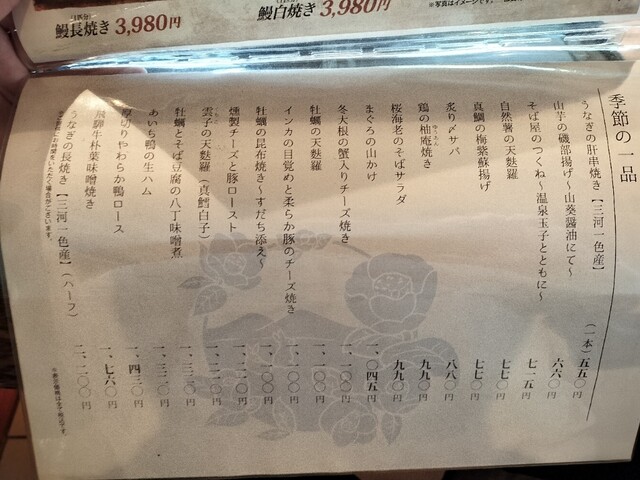 鰻長焼き 3,980円
鰻白焼き 3,980円
季節の一品
うなぎの肝串焼き【三河一色産】 (一本)五五〇円
山芋の磯部揚げ〜山葵醤油にて〜 六六〇円
そば屋のつくね〜温泉玉子とともに〜 七一五円
自然薯の天麩羅 七七〇円
真鯛の梅紫蘇揚げ 七七〇円
炙り〆サバ 八八〇円
鶏の柚庵焼き 九九〇円
桜海老のそばサラダ 九九〇円
まぐろの山かけ 一、〇四五円
冬大根の蟹入りチーズ焼き 一、一〇〇円
牡蠣の天麩羅 一、一〇〇円
インカの目覚めと柔らか豚のチーズ焼き 一、一〇〇円
牡蠣の昆布焼き〜すだち添え〜 一、一〇〇円
燻製チーズと豚ロースト
雲子の天麩羅(真鱈白子)
牡蠣とそば豆腐の八丁味噌煮
あいち鴨の生ハム
厚切りやわらか鴨ロース 一、四三〇円
飛騨牛朴葉味噌焼き 一、七六〇円
うなぎの長焼き【三河一色産】(ハーフ)
※表示価格は全て税込です。